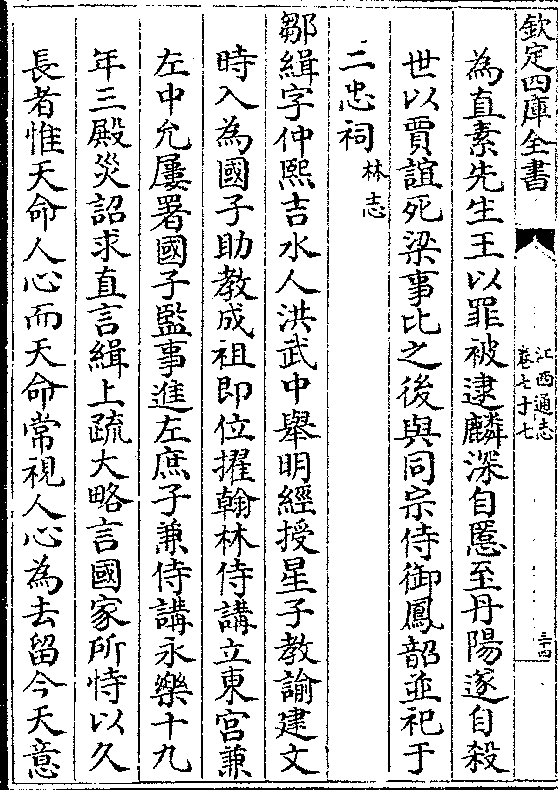 欽定四庫全書
江西通志
卷七十七
三十四
為直素先生王以罪被逮麟深自慝至丹陽遂自殺
世以賈誼死梁事比之後與同宗侍御鳳韶並祀于
二忠祠林志
鄒緝字仲熙吉水人洪武中舉明經授星子教諭建文
時入為國子助教成祖即位擢翰林侍講立東宮兼
左中允屢署國子監事進左庶子兼侍講永樂十九
年三殿災詔求直言緝上疏大略言國家所恃以久
長者惟天命人心而天命常視人心為去留今天意